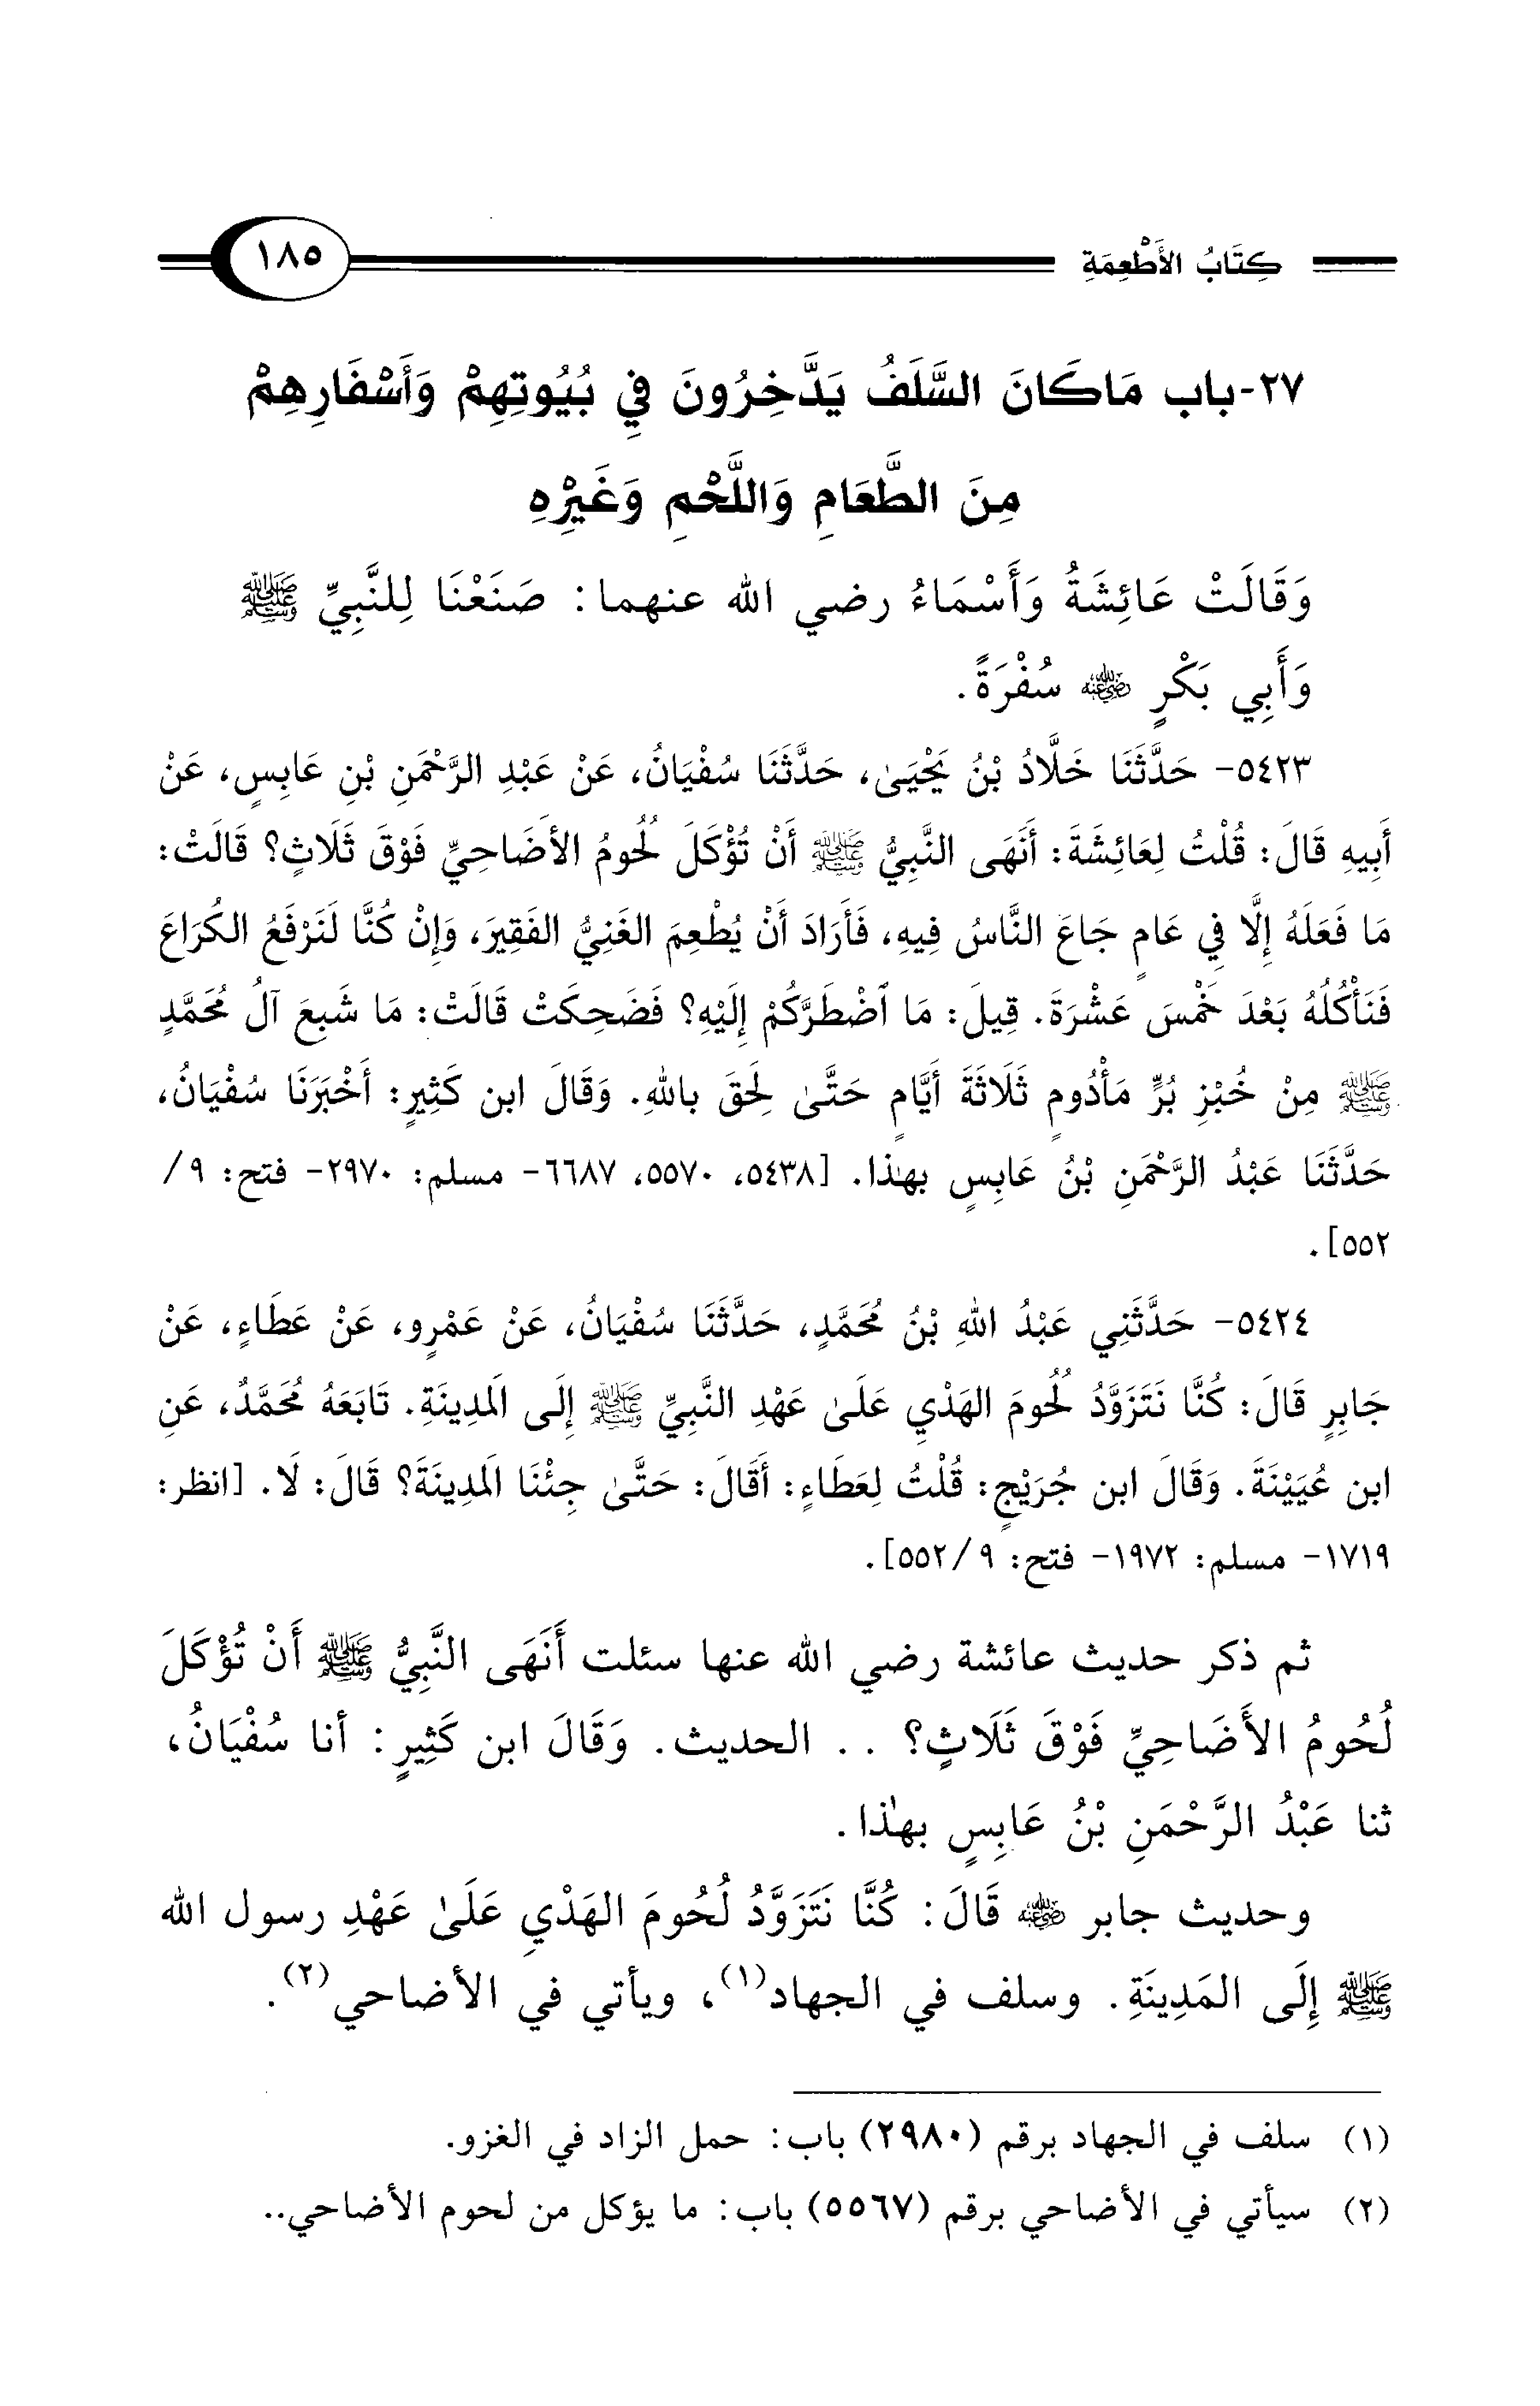 كِتَابُ الأَطْعِمَةِ ١٨٥
٢٧-باب مَا كَانَ السَّلَفُ يَدَّخِرُونَ فِي بُيُوتِهِمْ وَأَسْفَارِهِمْ
مِنَ الطَّعَامِ وَاللَّحْمِ وَغَيْرِهِ
وَقَالَتْ عَائِشَةُ وَأَسْمَاءُ رضي الله عنهما: صَنَعْنَا لِلنَّبِيِّ ﷺ
وَأَبِي بَكْرٍ رضي الله عنه سُفْرَةً.
٥٤٢٣- حَدَّثَنَا خَلَّادُ بْنُ يَحْيَىٰ، حَدَّثَنَا سُفْيَانُ، عَنْ عَبْدِ الرَّحْمَنِ بْنِ عَابِسٍ، عَنْ
أَبِيهِ قَالَ: قُلْتُ لِعَائِشَةَ: أَنَهَى النَّبِيُّ ﷺ أَنْ تُؤْكَلَ لُحُومُ الأَضَاحِيِّ فَوْقَ ثَلَاثٍ؟ قَالَتْ:
مَا فَعَلَهُ إِلَّا فِي عَامٍ جَاعَ النَّاسُ فِيهِ، فَأَرَادَ أَنْ يُطْعِمَ الغَنِيُّ الفَقِيرَ، وَإِنْ كُنَّا لَنَرْفَعُ الكُرَاعَ
فَنَأْكُلُهُ بَعْدَ خَمْسَ عَشْرَةَ. قِيلَ: مَا ٱضْطَرَّكُمْ إِلَيْهِ؟ فَضَحِكَتْ قَالَتْ: مَا شَبِعَ آلُ مُحَمَّدٍ
ﷺ مِنْ خُبْزِ بُرٍّ مَأْدُومٍ ثَلَاثَةَ أَيَّامٍ حَتَّىٰ لَحِقَ بِاللهِ. وَقَالَ ابن كَثِيرٍ: أَخْبَرَنَا سُفْيَانُ،
حَدَّثَنَا عَبْدُ الرَّحْمَنِ بْنُ عَابِسٍ بهٰذا. [٥٤٣٨، ٥٥٧٠، ٦٦٨٧- مسلم: ٢٩٧٠- فتح: ٩/
٥٥٢].
٥٤٢٤- حَدَّثَنِي عَبْدُ اللهِ بْنُ مُحَمَّدٍ، حَدَّثَنَا سُفْيَانُ، عَنْ عَمْرٍو، عَنْ عَطَاءٍ، عَنْ
جَابِرٍ قَالَ: كُنَّا نَتَزَوَّدُ لُحُومَ الهَدْيِ عَلَىٰ عَهْدِ النَّبِيِّ ﷺ إِلَى المَدِينَةِ. تَابَعَهُ مُحَمَّدٌ، عَنِ
ابن عُيَيْنَةَ. وَقَالَ ابن جُرَيْجٍ: قُلْتُ لِعَطَاءٍ: أَقَالَ: حَتَّىٰ جِئْنَا المَدِينَةَ؟ قَالَ: لَا. [انظر:
١٧١٩- مسلم: ١٩٧٢- فتح: ٩/٥٥٢].
ثم ذكر حديث عائشة رضي الله عنها سئلت أَنَهَى النَّبِيُّ ﷺ أَنْ تُؤْكَلَ
لُحُومُ الأَضَاحِيِّ فَوْقَ ثَلَاثٍ؟ .. الحديث. وَقَالَ ابن كَثِيرٍ: أنا سُفْيَانُ،
ثنا عَبْدُ الرَّحْمَنِ بْنُ عَابِسٍ بهٰذا.
وحديث جابر رضي الله عنه قَالَ: كُنَّا نَتَزَوَّدُ لُحُومَ الهَدْيِ عَلَىٰ عَهْدِ رسول الله
ﷺ إِلَى المَدِينَةِ. وسلف في الجهاد(١)، ويأتي في الأضاحي(٢).
(١) سلف في الجهاد برقم (٢٩٨٠) باب: حمل الزاد في الغزو.
(٢) سيأتي في الأضاحي برقم (٥٥٦٧) باب: ما يؤكل من لحوم الأضاحي..